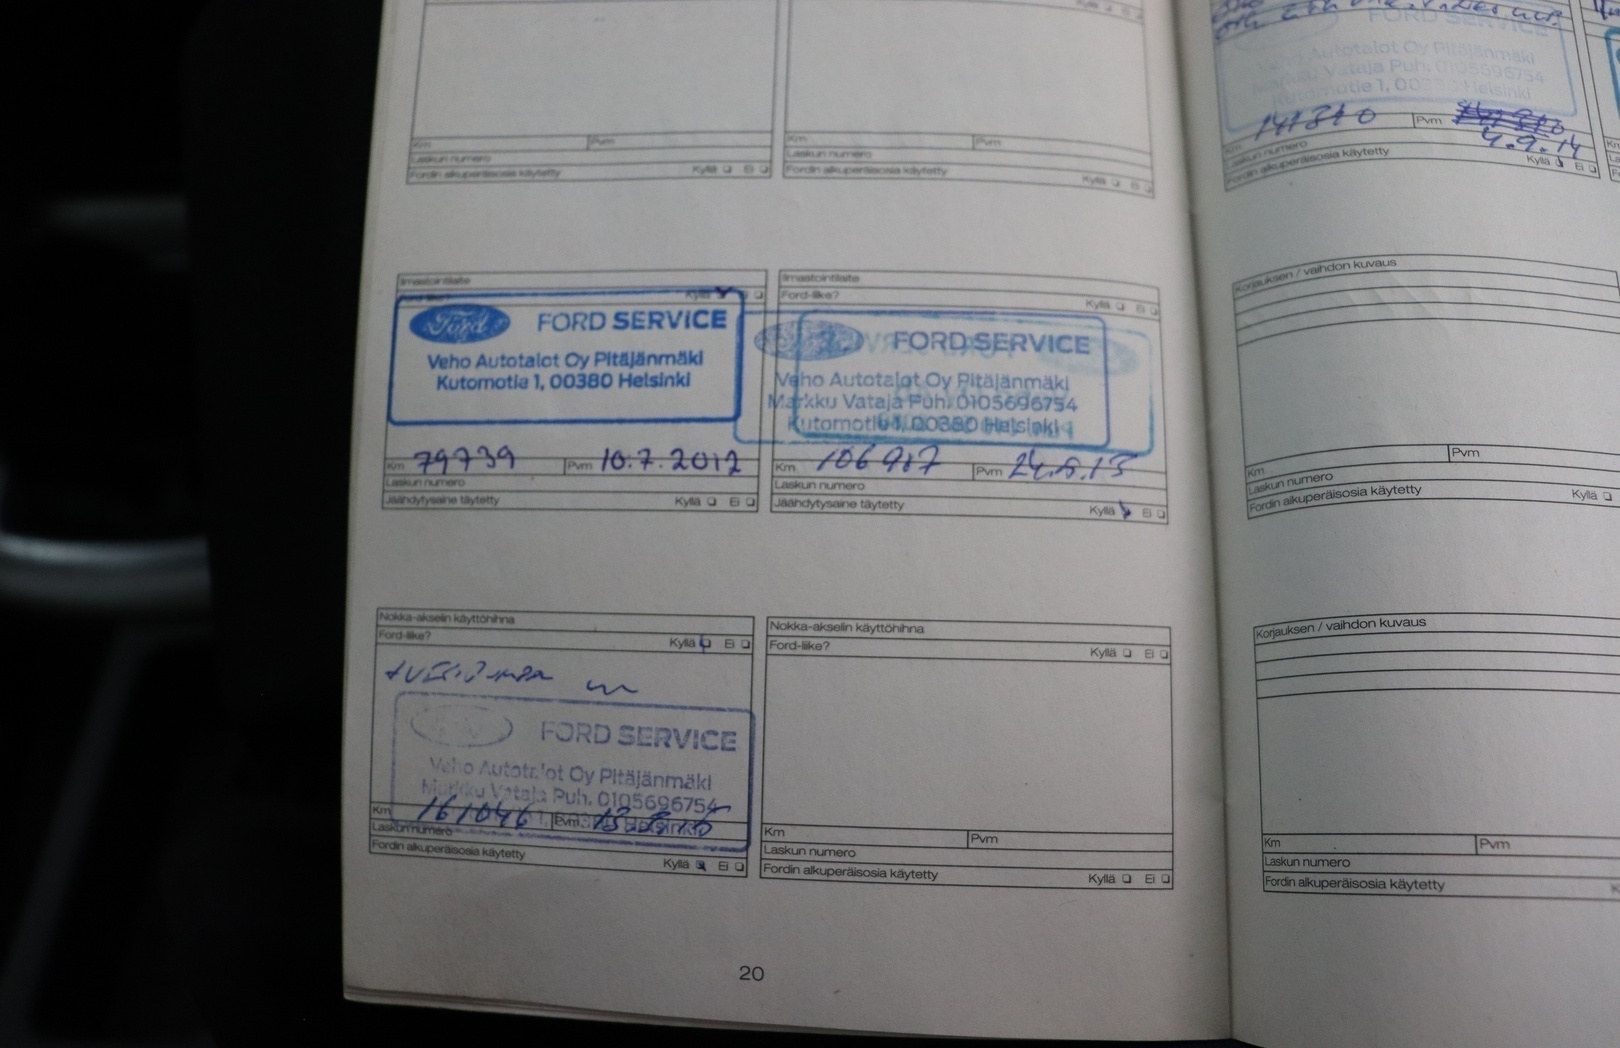 Km Pvm
Laskun numero
Fordin alkuperäisosia käytetty Kyllä Ei
Km Pvm
Laskun numero
Fordin alkuperäisosia käytetty Kyllä Ei
Ilmastointilaite
Ford-liike? Kyllä
Ford FORD SERVICE
Veho Autotalot Oy Pitäjänmäki
Kutomotie 1, 00380 Helsinki
Km 79739 Pvm 10.7.2012
Laskun numero
Jäähdytysaine täytetty Kyllä Ei
Ilmastointilaite
Ford-liike? Kyllä Ei
FORD SERVICE
Veho Autotalot Oy Pitäjänmäki
Markku Vataja Puh. 0105696754
Kutomotie 1, 00380 Helsinki
Km Pvm
Laskun numero
Jäähdytysaine täytetty Kyllä Ei
Nokka-akselin käyttöhihna
Ford-liike? Kyllä Ei
FORD SERVICE
Veho Autotalot Oy Pitäjänmäki
Markku Vataja Puh. 0105696754
Km 161046 Pvm
Laskun numero
Fordin alkuperäisosia käytetty Kyllä Ei
Nokka-akselin käyttöhihna
Ford-liike? Kyllä Ei
Km Pvm
Laskun numero
Fordin alkuperäisosia käytetty Kyllä Ei
20
FORD SERVICE
Veho Autotalot Oy Pitäjänmäki
Markku Vataja Puh. 0105696754
Kutomotie 1, 00380 Helsinki
Km 141810 Pvm 4.9.14
Laskun numero
Fordin alkuperäisosia käytetty Kyllä Ei
Korjauksen / vaihdon kuvaus
Km Pvm
Laskun numero
Fordin alkuperäisosia käytetty Kyllä
Korjauksen / vaihdon kuvaus
Km Pvm
Laskun numero
Fordin alkuperäisosia käytetty